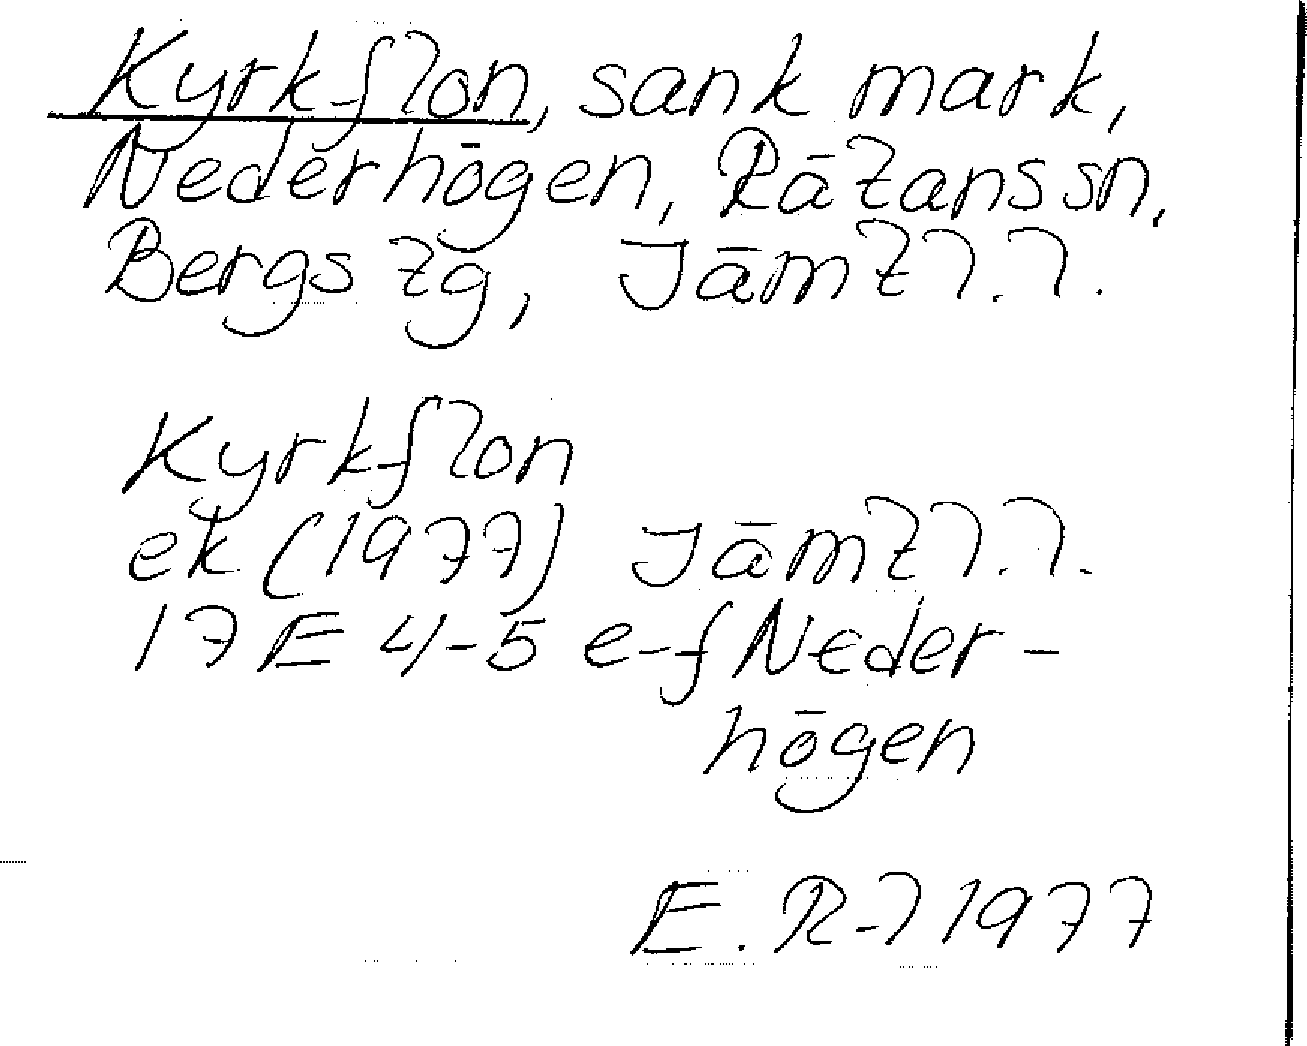 Kyrkflon, sank mark,
Nederhögen, Rätans sn,
Bergs tg, Jämtl.l.
Kyrkflon
ek (1977) Jämtl.l.
17E 4-5 e-f Neder-
högen
E. R-l 1977